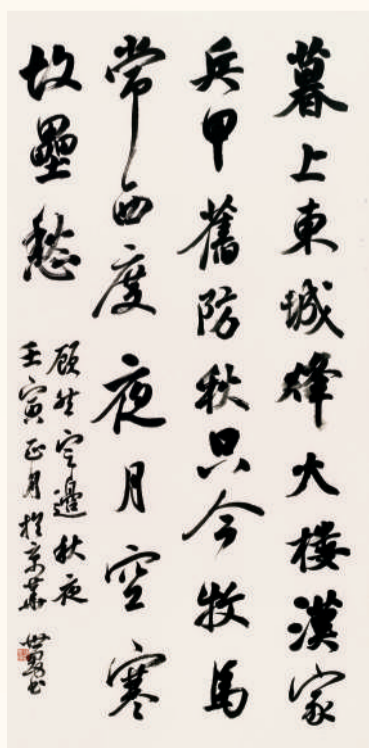 暮上東城烽火樓漢家
兵甲舊防秋只今牧馬
常西度夜月空寒
故壘愁
顧 定邊秋夜
壬寅正月於京華 世 书